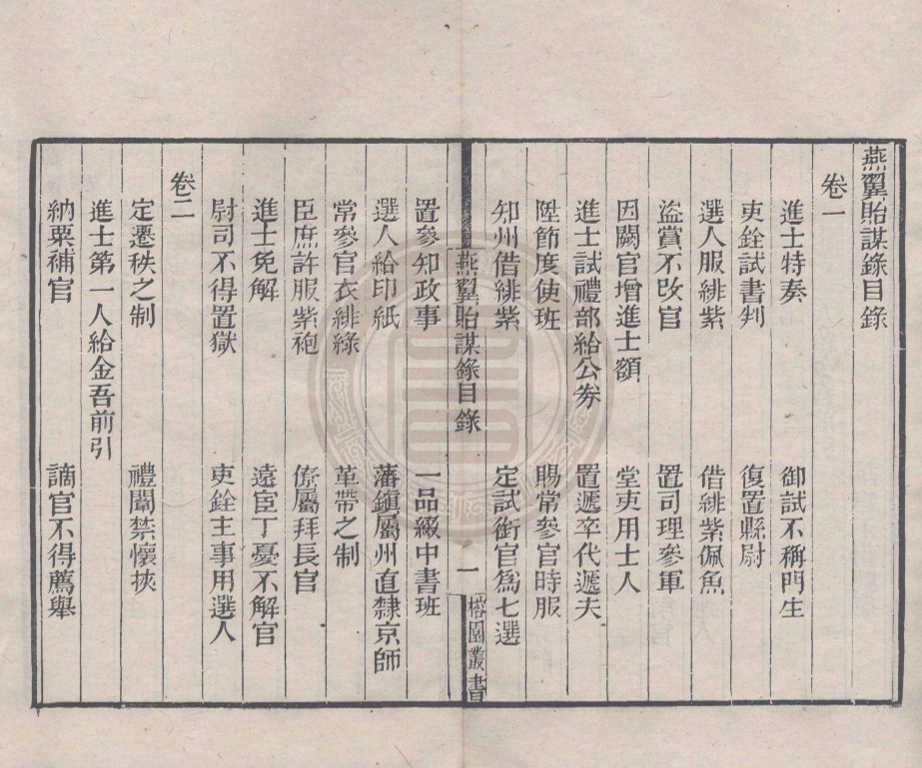 燕翼貽謀錄目錄
卷一
進士特奏　御試不稱門生
吏銓試書判　復置縣尉
選人服緋紫　借緋紫佩魚
盜賞不改官　置司理參軍
因闕官增進士額　堂吏用士人
進士試禮部給公券　置遞卒代遞夫
陞節度使班　賜常參官時服
知州借緋紫　定試銜官爲七選
燕翼貽謀錄目錄　一　榕園叢書
置參知政事　一品綴中書班
選人給印紙　藩鎭屬州直隸京師
常參官衣緋綠　革帶之制
臣庶許服紫袍　僚屬拜長官
進士免解　遠宦丁憂不解官
尉司不得置獄　吏銓主事用選人
卷二
定遷秩之制　禮闈禁懷挾
進士第一人給金吾前引
納粟補官　謫官不得薦舉